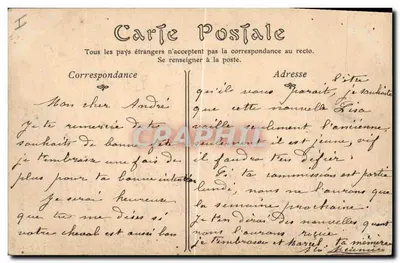 I
Carte Postale
Tous les pays étrangers n'acceptent pas la correspondance au recto.
Se renseigner à la poste.
Correspondance
Adresse
Mon cher André
Je te remercie de tes
souhaits de bonne fête
je t'embrasse une fois de
plus pour ta bonne intention
Je serai heureuse
que tu me dises si
votre cheval est aussi bon
qu'il vous parait, je souhaite
que cette nouvelle Lisa
l'ancienne,
il est jeune, vif
il faudra t'en défier!
Si ta commission est partie
lundi, nous ne l'aurons que
la semaine prochaine!
Je t'en dirai des nouvelles quand
nous l'aurons reçue
je t'embrasse et ta mémère
CPARAMA